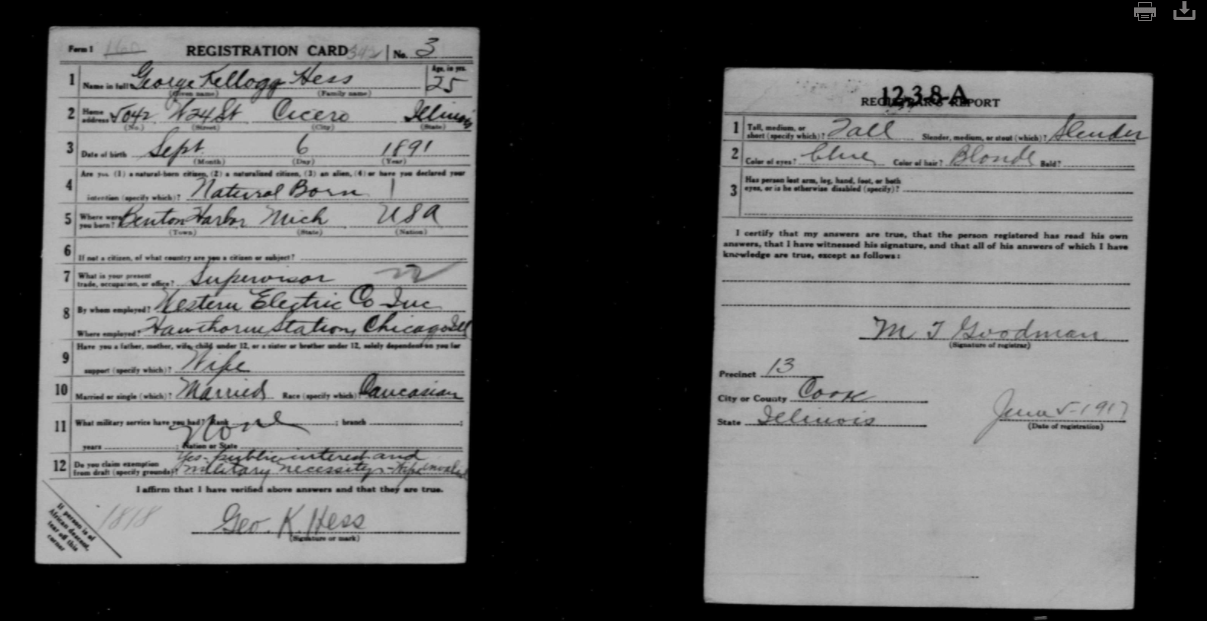 Form 1 160 REGISTRATION CARD 342 No. 3
1 Name in full George Kellogg Hess Age, in yrs. 25
(Given name) (Family name)
2 Home address 5042 W 24 St Cicero Illinois
(No.) (Street) (City) (State)
3 Date of birth Sept. 6 1891
(Month) (Day) (Year)
Are you (1) a natural-born citizen, (2) a naturalized citizen, (3) an alien, (4) or have you declared your
4 intention (specify which)? Natural Born
5 Where were you born? Benton Harbor Mich USA
(Town) (State) (Nation)
6 If not a citizen, of what country are you a citizen or subject?
7 What is your present trade, occupation, or office? Supervisor
8 By whom employed? Western Electric Co Inc
Where employed? Hawthorne Station, Chicago Ill
9 Have you a father, mother, wife, child under 12, or a sister or brother under 12, solely dependent on you for
support (specify which)? Wife
10 Married or single (which)? Married Race (specify which)? Caucasian
11 What military service have you had? Rank ; branch ;
years ; Nation or State None
12 Do you claim exemption from draft (specify grounds)? Yes - public interest and
military necessity -
I affirm that I have verified above answers and that they are true.
1818
Geo. K. Hess
(Signature or mark)
If person is of
African descent,
tear off this
corner
1238-A
REGISTRAR'S REPORT
1 Tall, medium, or short (specify which)? Tall Slender, medium, or stout (which)? Slender
2 Color of eyes? blue Color of hair? Blonde Bald?
3 Has person lost arm, leg, hand, foot, or both
eyes, or is he otherwise disabled (specify)?
I certify that my answers are true, that the person registered has read his own
answers, that I have witnessed his signature, and that all of his answers of which I have
knowledge are true, except as follows:
M T Goodman
(Signature of registrar)
Precinct 13
City or County Cook
State Illinois June 5-1917
(Date of registration)